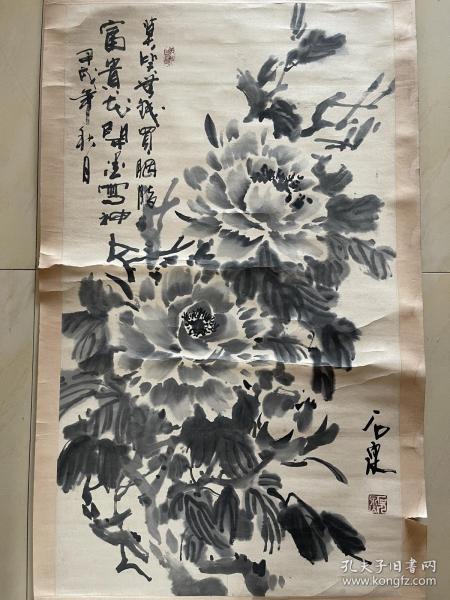 莫無錢買胭脂
富貴花開墨寫神
甲戌年秋月
孔夫子旧书网
www.kongfz.com